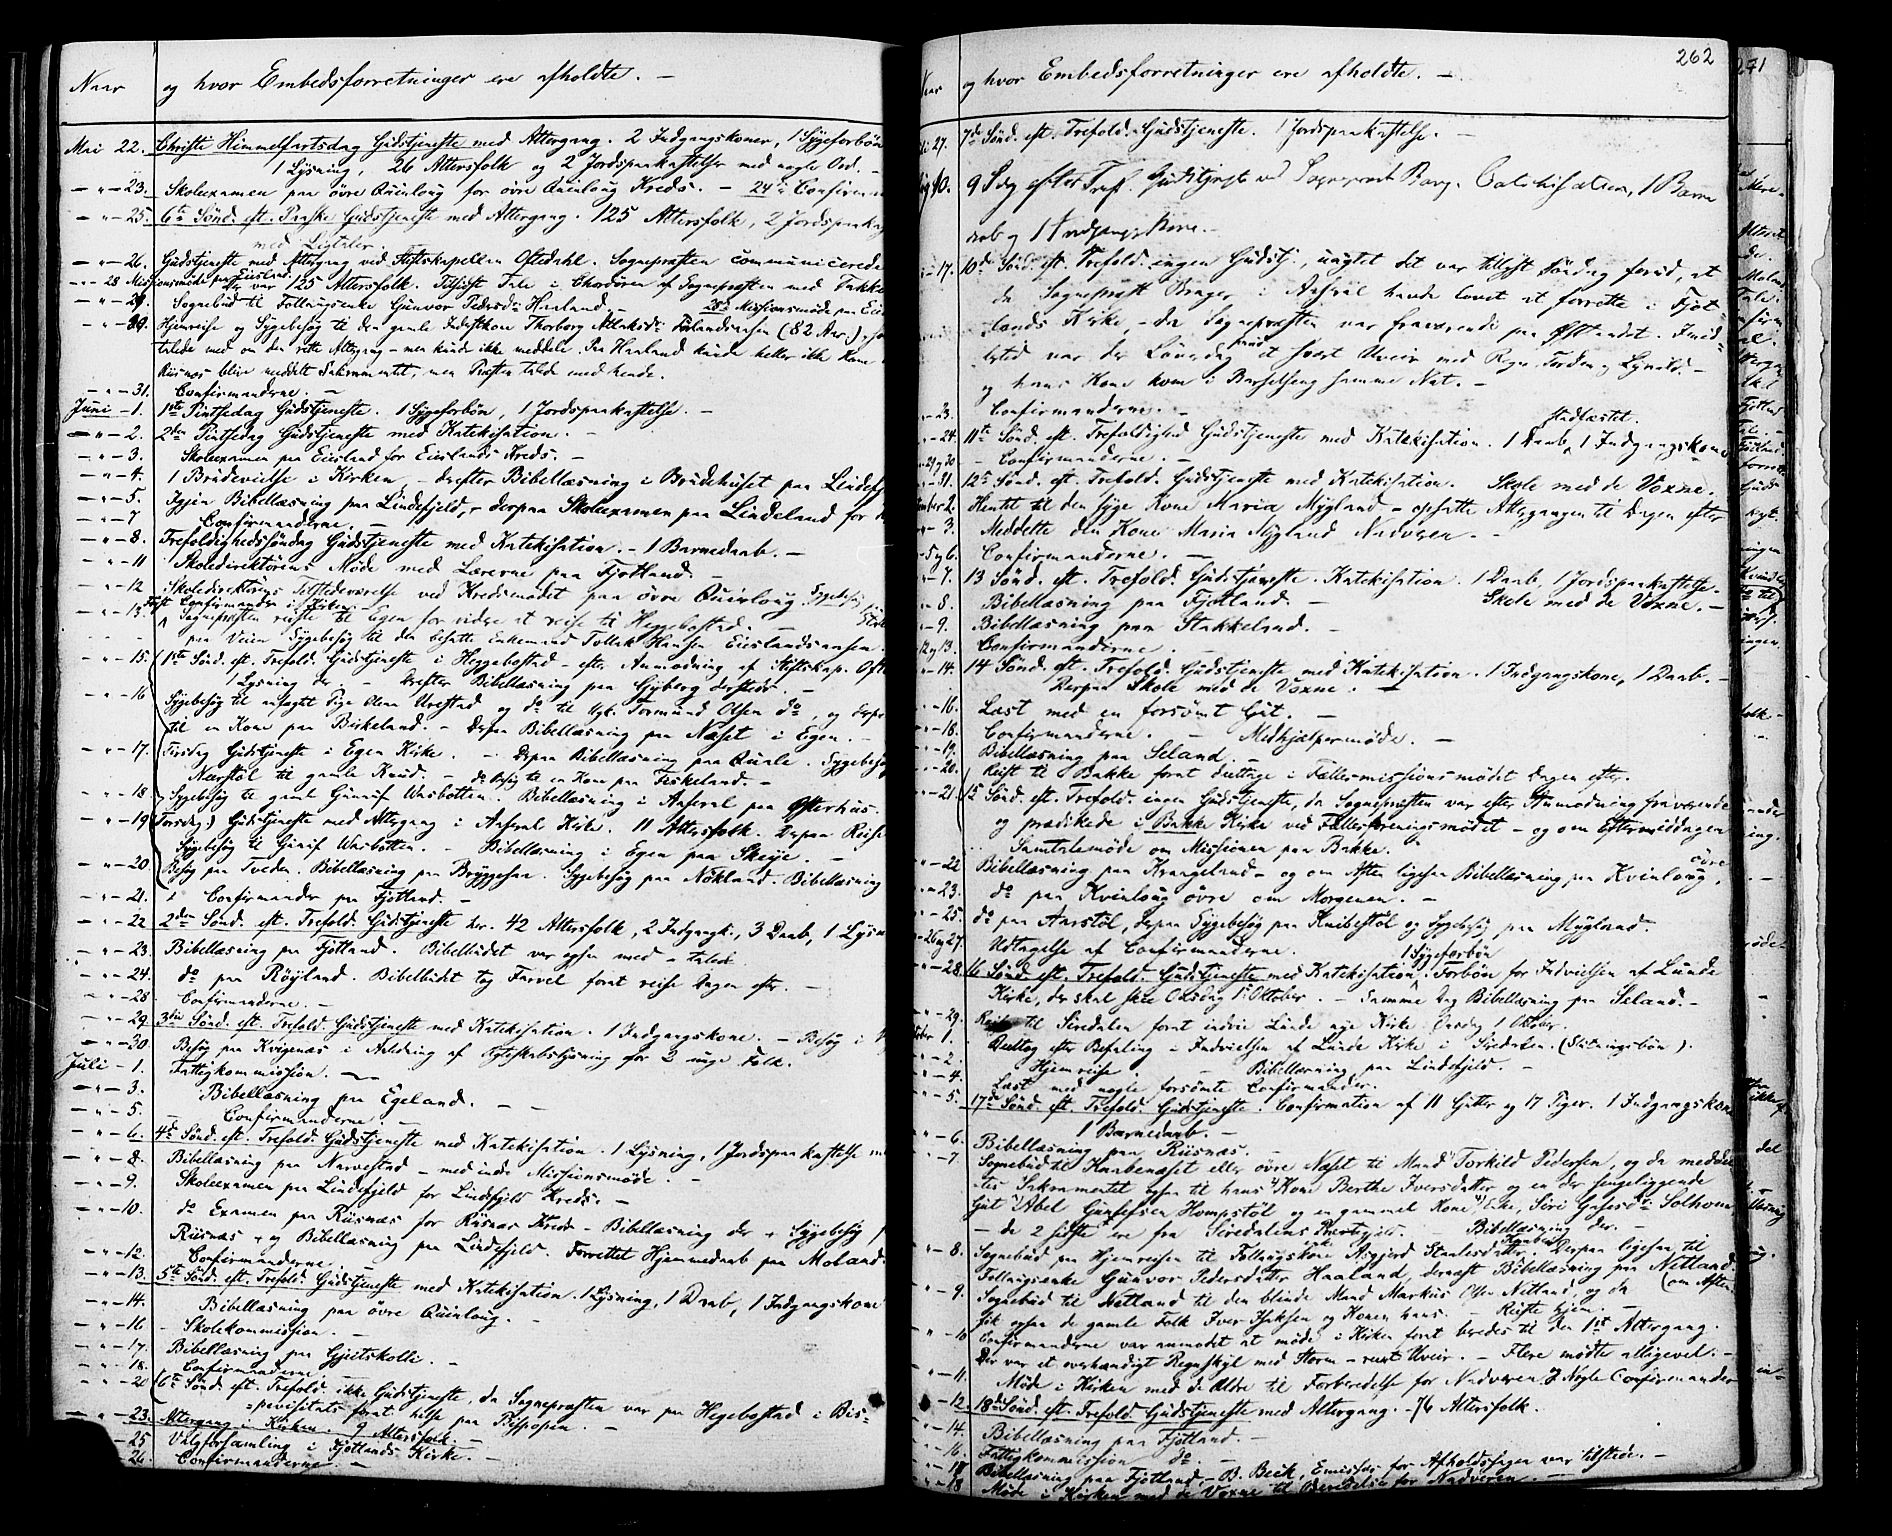 Naar og hvor Embedsforretninger ere afholdte. —
Mai 22. Christi Himmelfartsdag Gudstjeneste med Altergang. 2 Indgangskoner, 1 Sygeforbön
1 Lysning, 26 Altersfolk og 2 Jordspaakastelser med nogle Ord. —
— " — 23. Skoleexamen paa övre Quinlaug for övre Quinlaug Kreds. — 24de Confirman
— " — 25. 6te Sönd. eft. Paaske Gudstjeneste med Altergang. 125 Altersfolk, 2 Jordspaakas
med Ligtaler.
— " — 26. Gudstjeneste med Altergang ved Stiftskapellan Oftedahl. Sognepræsten communicerede
— " — 28 Missionsmøde paa Eiesland. Der var 125 Altersfolk. Tilsidst Tale i Chordören af Sognepræsten med Takke
— " — 29. Sognebud til Follaugsenke Gunvor Pedersdr Haaland. — 28de Missionsmøde paa Eies
— " — 29. Hjemreise og Sygebesög til den gamle Indestkone Thorborg Atlaksdr (82 Aar),
talede med om den rette Altergang — men kunde ikke meddele. Paa Haaland kunde heller ikke Kone
Risnæs blive meddelt Sakramentet, men Præsten talede med hende.
— " — 31. Confirmanderne. —
Juni — 1. 1ste Pintsedag Gudstjeneste. 1 Sygeforbön, 1 Jordspaakastelse. —
— " — 2. 2den Pintsedag Gudstjeneste med Katekisation. —
— " — 3. Skoleexamen paa Eiesland for Eieslands Kreds. —
— " — 4. 1 Brudevielse i Kirken, — derefter Bibellæsning i Brudehuset paa Lindefj
— " — 5. Igjen Bibellæsning paa Lindefjeld, — derpaa Skoleexamen paa Lindeland for d
— " — 7 Confirmanderne. —
— " — 8. Trefoldighedssöndag Gudstjeneste med Katekisation. — 1 Barnedaab. —
— " — 11 Skoledirektörens Möde med Lærerne paa Fjotland. —
— " — 12 Skoledirektörens Tilstedeværelse ved Kredsmödet paa övre Quinlaug Sygebesög
Först Confirmander i Kirken
— " — 13. Sognepræsten reiste til Egen for videre at reise til Heggebostad. —
paa Veien Sygebesög til den besatte Enkemand Tollak Hansen Eieslandsaasen.
— " — 15. 1ste Sönd. eft. Trefold. Gudstjeneste i Heggebostad — efter Anmodning af Stiftskap. Ofte
1 Lysning der. — Derefter Bibellæsning paa Gyberg dersteds. —
— " — 16 Sygebesög til ansögte Pige Olena Urestad og do til Ugk. Tormund Olsen do, og derpaa
til en Kone paa Birkeland. — Derpaa Bibellæsning paa Næset i Egen. —
— " — 17. Tirsdag Gudstjeneste i Egen Kirke. — Derpaa Bibellæsning paa Quale. Sygebesög
Nærstöl til gamle Knud. — do Besög til en Kone paa Fiskeland. —
— " — 18 Sygebesög til gamle Gunuf Vasbotten. Bibellæsning i Aaseral paa Österhus.
— " — 19 (Torsdag) Gudstjeneste med Altergang i Aaseral Kirke. 11 Altersfolk. Derpaa Reise
Sygebesög til Gunuf Vasbotten. — Bibellæsning i Egen paa Skeije. —
— " — 20 Besög paa Tveden. Bibellæsning paa Bryggesaa. Sygebesög paa Nökland. Bibellæsning
— " — 21. Confirmander paa Fjotland. —
— " — 22 2den Sönd. eft. Trefold. Gudstjeneste her. 42 Altersfolk, 2 Indgangsk., 3 Daab, 1 Lysn
— " — 23. Bibellæsning paa Fjotland. Bibelbudet var ogsaa med — talede.
— " — 24. do paa Röyland. Bibelbudet tog Farvel for at reise Dagen efter. —
— " — 28. Confirmanderne. —
— " — 29. 3die Sönd. eft. Trefold. Gudstjeneste med Katekisation. 1 Indgangskone. — Besög i
— " — 30 Besög paa Kvigenæs i Anledning af Ægteskabslysning for 2 unge Folk.
Juli — 1. Fattigkommission. —
— " — 3. Bibellæsning paa Egeland. —
— " — 5. Confirmanderne. —
— " — 6. 4de Sönd. eft. Trefold. Gudstjeneste med Katekisation. 1 Lysning, 1 Jordspaakastelse
— " — 8. Bibellæsning paa Narvestad — med indre Missionsmöde. —
— " — 9. Skoleexamen paa Lindefjeld for Lindefjeld Kreds. —
— " — 10. do Examen paa Risnæs for Risnæs Kreds — Bibellæsning der + Sygebesög
Risnæs + og Bibellæsning paa Lindefjeld. Forrettet Hjemmedaab paa Moland
— " — 12. Confirmanderne. —
— " — 13. 5te Sönd. eft. Trefold. Gudstjeneste med Katekisation. 1 Lysning, 1 Daab, 1 Indgangskone
— " — 14. Bibellæsning paa övre Quinlaug. —
— " — 16 Skolekommission. —
— " — 17. Bibellæsning paa Gjeitskolli. —
— " — 18. Confirmanderne. —
— " — 20 6te Sönd. eft. Trefold. ikke Gudstjeneste, da Sognepræsten var paa Hegebostad i Bis-
=pevisitats for at hilse paa Bispen. —
— " — 23. Altergang i Kirken. 9 Altersfolk. —
— 25 Valgforsamling i Fjotlands Kirke. —
26. Confirmanderne. —
262
Naar og hvor Embedsforretninger ere afholdte. —
27. 7de Sönd. eft. Trefold. Gudstjeneste. 1 Jordspaakastelse. —
10. 9 Sdg efter Tref. Gudstjeneste ved Sognepræst Barg. Catechisation, 1 Barne
daab og 1 Indgangskone. —
— 17. 10de Sönd. eft. Trefold. ingen Gudstj., uagtet det var tillyst Söndag forud, at
da Sognepræst Brager i Aaseral havde lovet at forrette i Fjot-
lands Kirke — da Sognepræsten var fraværende paa Östlandet. Imid-
lertid var der Löverdag et svært Uveir med Regn, Torden og Lynild. —
og hans Kone kom i Barselseng samme Nat. —
— 23. Confirmanderne. —
— 24. 11te Sönd. eft. Trefoldighed Gudstjeneste med Katekisation. 1 Daab stadfæstet, 1 Indgangskone
29 og 30 — Confirmanderne. —
— 31. 12te Sönd. eft. Trefold. Gudstjeneste med Katekisation. Skole med de Voxne.
tember 2. Hentet til den syge Kone Maria Mygland — opsatte Altergangen til Dagen efter.
— 3. Meddelte den Kone Maria Mygland Nadveren. —
— 5 og 6. Confirmanderne. —
— 7. 13 Sönd. eft. Trefold. Gudstjeneste. Katekisation. 1 Daab, 1 Jordspaakastelse.
— 8. Bibellæsning paa Fjotland. — Skole med de Voxne. —
— 9. Bibellæsning paa Stakkeland. —
12 og 13. Confirmanderne. —
— 14. 14 Sönd. eft. Trefold. Gudstjeneste med Katekisation. 1 Indgangskone, 1 Daab. —
Derpaa Skole med de Voxne. —
— 16. Læst med en forsömt Gut. —
— 18. Confirmanderne. — Medhjælpermöde. —
— 19. Bibellæsning paa Seland. —
— 20. Reist til Bakke for at deeltage i Fællesmissionsmödet Dagen efter.
— 21. 15 Sönd. eft. Trefold. ingen Gudstjeneste, da Sognepræsten var efter Anmodning fraværende
og prædikede i Bakke Kirke ved Fællesforeningsmödet — og om Eftermiddagen
Samtalemöde om Missionen paa Bakke. —
— 22 Bibellæsning paa Kvaageland — og om Aften ligesaa Bibellæsning paa Kvinlaug övre.
— 23. do paa Kvinlaug övre om Morgenen. —
— 25. do paa Aarstöl, derpaa Sygebesög paa Knibestöl og Sygebesög paa Mygland.
— 26 og 27. Udtagelse af Confirmanderne. 1 Sygeforbön
— 28. 16 Sönd. eft. Trefold. Gudstjeneste med Katekisation, Forbön for Indvielsen af Lunde
Kirke, der skal skee Onsdag 1ste Oktober. — Samme Dag Bibellæsning paa Seland. —
— 29. Reist til Siredalen for at indvie Lunde nye Kirke. Onsdag 1 Oktober.
tober 1. Deeltog efter Befaling i Indvielsen af Lunde Kirke i Siredalen. (Slutningsbön).
— 2. Hjemreise. — Bibellæsning paa Lindefjeld. —
— 4. Læst med nogle forsömte Confirmander.
— 5. 17de Sönd. eft. Trefold. Gudstjeneste. Confirmation af 11 Gutter og 17 Piger. 1 Indgangskone
1 Barnedaab. —
— 6. Bibellæsning paa Risnæs. —
— 7. Sognebud til Haabenæset eller övre Næset til Mand Torkild Pedersen, og da meddel-
tes Sakramentet ogsaa til hans Kone Berthe Iversdatter og en der sengeliggende
Gut Abel Gunufsen Hompstöl og en gammel Kone Enke, Siri Solhom
— de 2 sidste ere fra Siredalens Præstegjeld. Bibellæsning der. —
— 8. Sognebud paa Hjemreisen til Follaugskone Asgjerd Staalesdatter. Derpaa ligesaa til
Follaugsenke Gunvor Pedersdatter Haaland, dernæst Bibellæsning paa Netland (om Aften
— 9. Sognebud til Netland til den blinde Mand Markus Olsen Netland, og da
fik ogsaa de gamle Folk Iver Isaksen og Konen hans. — Reiste hjem. —
— 10 Confirmanderne var anmodet at möde i Kirken for at beredes til den 1ste Altergang.
Der var et overhændigt Regnskyl med Storm — rent Uveir. — Flere mödte alligevel. —
— 11. Möde i Kirken med de Ældre til Forberedelse for Nadveren & Nogle Confirmander
— 12. 18de Sönd. eft. Trefold. Gudstjeneste med Altergang. — 76 Altersfolk.
— 14. Bibellæsning paa Fjotland. —
— 16. Fattigkommission do. —
— 17 Bibellæsning paa Fjotland. — B. Beck, Emissær for Afholdssagen var tilstede. —
— 18 Möde i Kirken med de Voxne til Beredelse for Nadveren. —
271